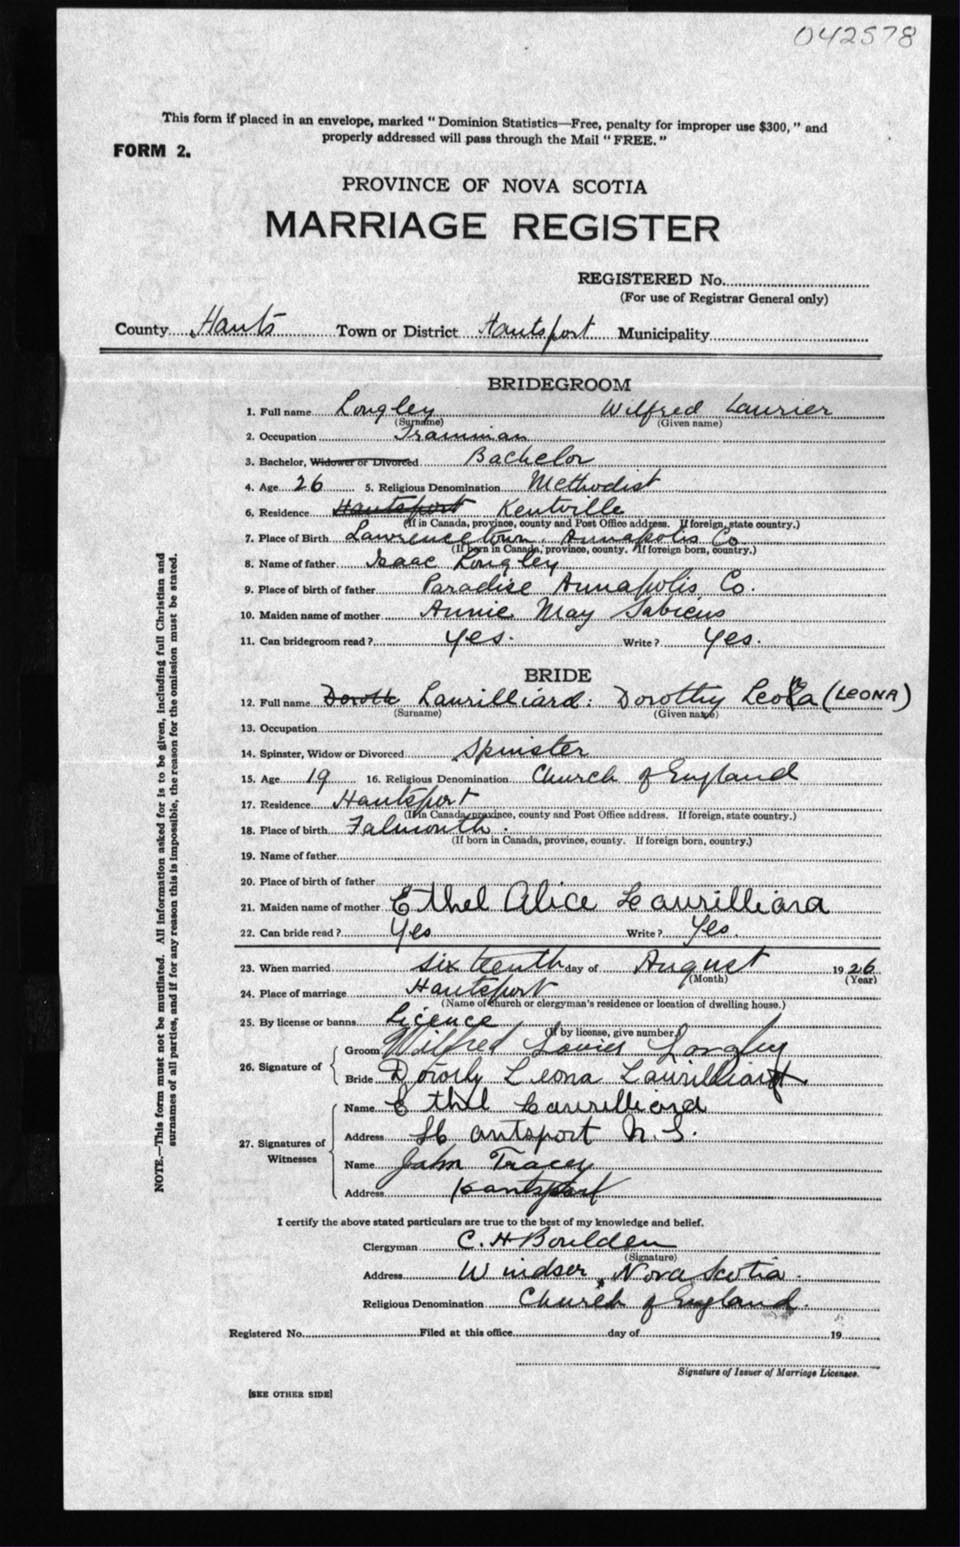 042578
This form if placed in an envelope, marked "Dominion Statistics—Free, penalty for improper use $300," and
properly addressed will pass through the Mail "FREE."
FORM 2.
PROVINCE OF NOVA SCOTIA
MARRIAGE REGISTER
REGISTERED No.
(For use of Registrar General only)
County Hants Town or District Hantsport Municipality
BRIDEGROOM
1. Full name Longley Wilfred Laurier
(Surname) (Given name)
2. Occupation Trainman
3. Bachelor, Widower or Divorced Bachelor
4. Age 26 5. Religious Denomination Methodist
6. Residence Hantsport Kentville
(If in Canada, province, county and Post Office address. If foreign, state country.)
7. Place of Birth Lawrencetown. Annapolis Co
(If born in Canada, province, county. If foreign born, country.)
8. Name of father Isaac Longley
9. Place of birth of father Paradise Annapolis Co.
10. Maiden name of mother Annie May
11. Can bridegroom read? yes. Write? yes.
BRIDE
12. Full name Doroth Laurilliard: Dorothy Leona (LEONA)
(Surname) (Given name)
13. Occupation
14. Spinster, Widow or Divorced Spinster
15. Age 19 16. Religious Denomination Church of England
17. Residence Hantsport
(If in Canada, province, county and Post Office address. If foreign, state country.)
18. Place of birth Falmouth.
(If born in Canada, province, county. If foreign born, country.)
19. Name of father
20. Place of birth of father
21. Maiden name of mother Ethel Alice Laurilliard
22. Can bride read? Yes Write? Yes.
23. When married sixteenth day of August 1926
(Month) (Year)
24. Place of marriage Hantsport
(Name of church or clergyman's residence or location of dwelling house.)
25. By license or banns Licence
(If by license, give number.)
26. Signature of
Groom Wilfred Lourier Longley
Bride Dorothy Leona Laurilliard
27. Signatures of Witnesses
Name Ethel Laurilliard
Address Hantsport N.S.
Name John Tracey
Address Hantsport
I certify the above stated particulars are true to the best of my knowledge and belief.
Clergyman C. H Boulden
(Signature)
Address Windsor, Nova Scotia.
Religious Denomination Church of England.
Registered No. Filed at this office day of 19
Signature of Issuer of Marriage Licenses.
[SEE OTHER SIDE]
NOTE.—This form must not be mutilated. All information asked for is to be given, including full Christian and
surnames of all parties, and if for any reason this is impossible, the reason for the omission must be stated.